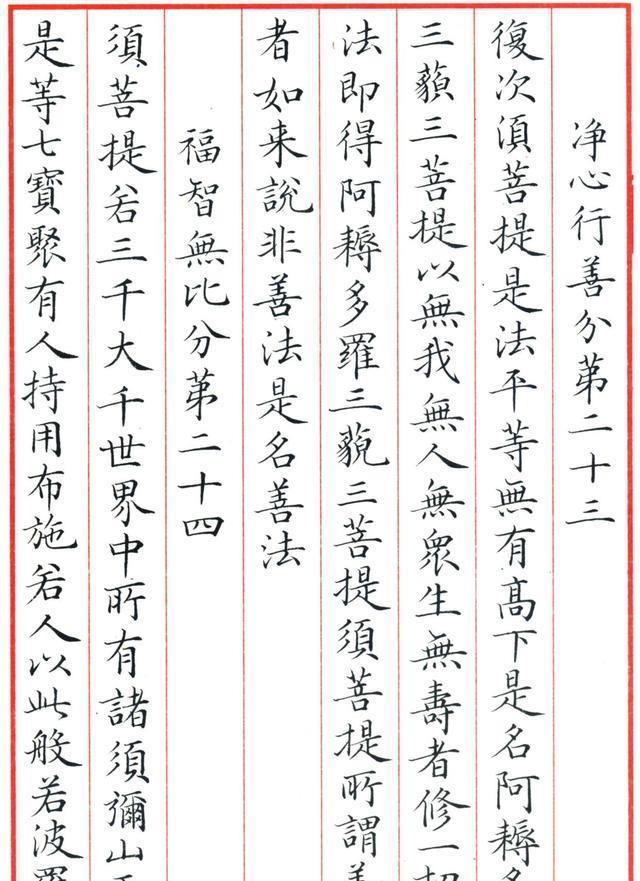 净心行善分第二十三
復次須菩提是法平等無有髙下是名阿耨
三藐三菩提以無我無人無衆生無壽者修一
法即得阿耨多羅三藐三菩提須菩提所謂
者如来說非善法是名善法
福智無比分第二十四
須菩提若三千大千世界中所有諸須彌山
是等七寶聚有人持用布施若人以此般若波